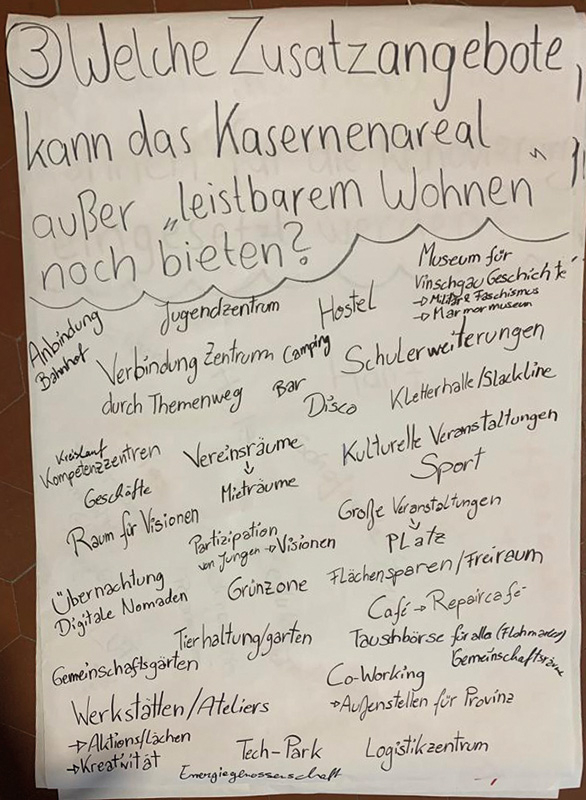 ③ Welche Zusatzangebote,
kann das Kasernenareal
außer „leistbarem Wohnen"
noch bieten?
Museum für
Vinschgau Geschichte
→ Militär & Faschismus
→ Marmormuseum
Anbindung
Bahnhof
Jugendzentrum
Hostel
Verbindung Zentrum
durch Themenweg
Camping
Schulerweiterungen
Bar
Disco
Kletterhalle/Slackline
Kreislauf
Kompetenzzentren
Vereinsräume
↓
Mieträume
Kulturelle Veranstaltungen
Sport
Geschäfte
Raum für Visionen
Partizipation
von Jungen → Visionen
Große Veranstaltungen
↓
PLatz
Übernachtung
Digitale Nomaden
Grünzone
Flächensparen/Freiraum
Café → Repaircafé
Tierhaltung/garten
Taushbörse für alles (Flohmarkt)
Gemeinschaftsräume
Gemeinschaftsgärten
Co-Working
→ Außenstellen für Provinz
Werkstätten/Ateliers
→ Aktionsflächen
→ Kreativität
Tech-Park
Logistikzentrum
Energiegenossenschaft